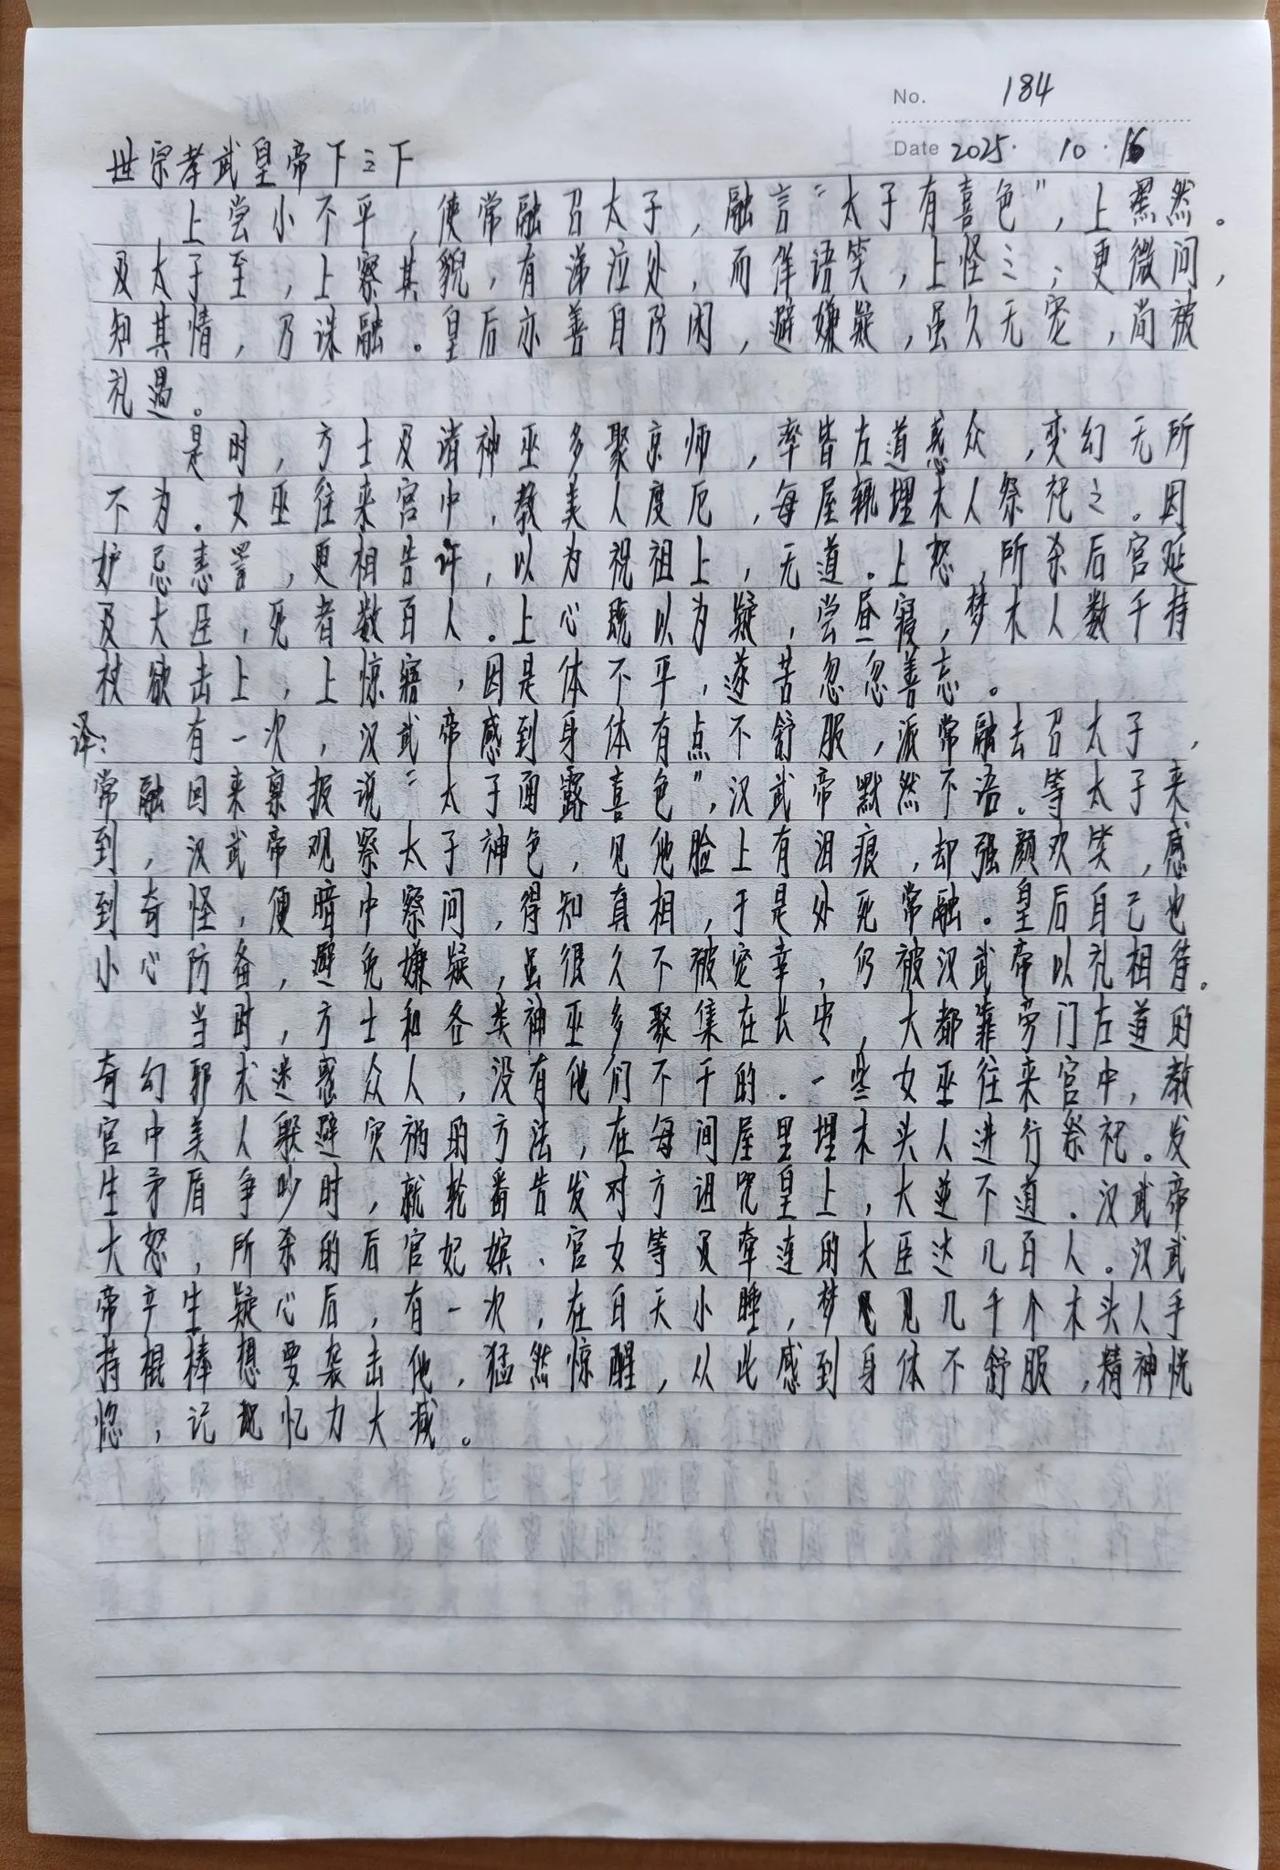 No. 184
Date 2025. 10. 16
世宗孝武皇帝下之下
上尝小不平,使常融召太子,融言“太子有喜色”,上默然。
及太子至,上察其貌,有涕泣处,而佯语笑,上怪之;更微问,
知其情,乃诛融。皇后亦善自防闲,避嫌疑,虽久无宠,尚被
礼遇。
是时,方士及诸神巫多聚京师,率皆左道惑众,变幻无所
不为。女巫往来宫中,教美人度厄,每屋辄埋木人祭祀之。因
妒忌恚詈,更相告讦,以为祝诅上,无道。上怒,所杀后宫延
及大臣,死者数百人。上心既以为疑,尝昼寝,梦木人数千持
杖欲击上,上惊寤,因是体不平,遂苦忽忽善忘。
译:有一次,汉武帝感到身体有点不舒服,派常融去召太子,
常融回来禀报说“太子面露喜色”,汉武帝默然不语。等太子来
到,汉武帝观察太子神色,见他脸上有泪痕,却强颜欢笑,感
到奇怪,便暗中察问,得知真相,于是处死常融。皇后自己也
小心防备,避免嫌疑,虽很久不被宠幸,仍被汉武帝以礼相待。
当时,方士和各类神巫多聚集在长安,大都靠旁门左道的
奇幻邪术迷惑众人,没有他们不干的。一些女巫往来宫中,教
宫中美人躲避灾祸的方法,在每间屋里埋木头人进行祭祀。发
生矛盾争吵时,就轮番告发对方诅咒皇上,大逆不道。汉武帝
大怒,所杀的后宫妃嫔、宫女等及牵连的大臣达几百人。汉武
帝产生疑心后,有一次,在白天小睡,梦见几千个木头人手
持棍棒想要袭击他,猛然惊醒,从此感到身体不舒服,精神恍
惚,记忆力大减。